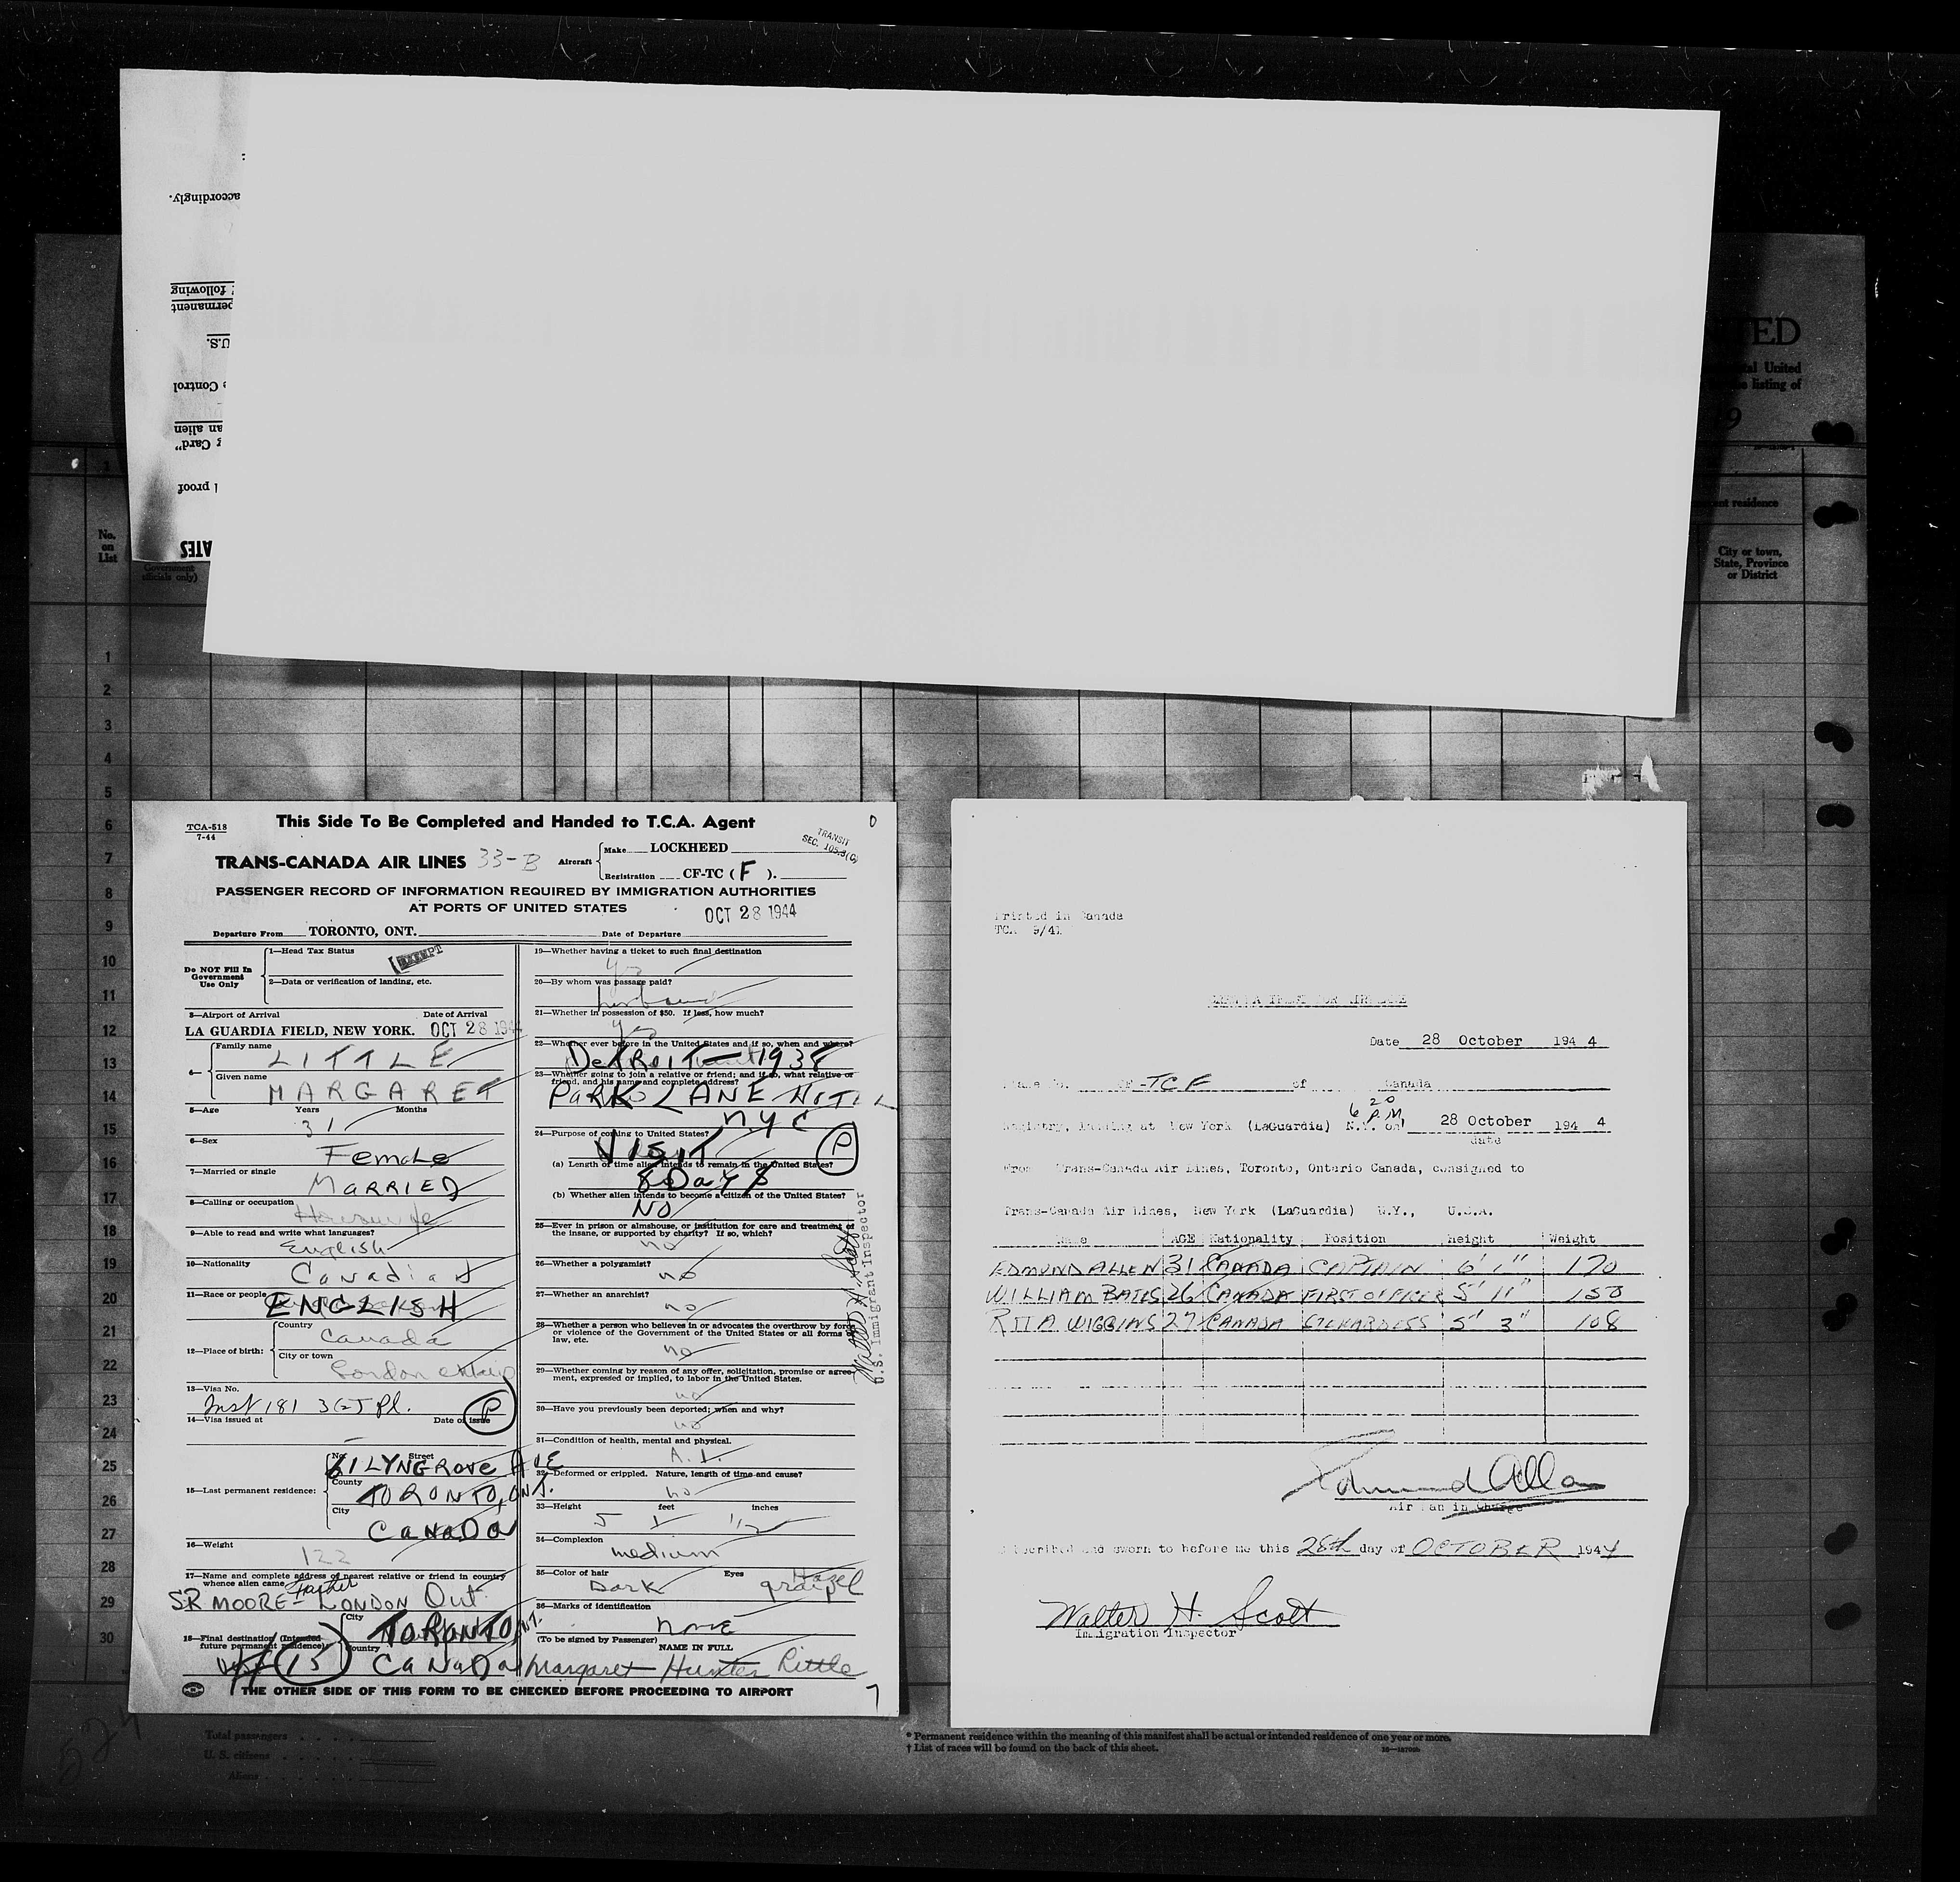 accordingly.
following
permanent
U.S.
Control
an alien
Card"
proof
ATES
TED
United
listing of
9
residence
No.
on
List
Government
officials only)
City or town,
State, Province
or District
1
2
3
4
5
6
7
8
9
10
11
12
13
14
15
16
17
18
19
20
21
22
23
24
25
26
27
28
29
30
TCA-518
7-44
This Side To Be Completed and Handed to T.C.A. Agent
TRANSIT
SEC. 105.3(C)
TRANS-CANADA AIR LINES 33-B
Aircraft
Make LOCKHEED
Registration CF-TC ( F ).
PASSENGER RECORD OF INFORMATION REQUIRED BY IMMIGRATION AUTHORITIES
AT PORTS OF UNITED STATES
OCT 28 1944
Departure From TORONTO, ONT. Date of Departure
Do NOT Fill In
Government
Use Only
1—Head Tax Status
EXEMPT
2—Data or verification of landing, etc.
3—Airport of Arrival Date of Arrival
LA GUARDIA FIELD, NEW YORK. OCT 28 1944
Family name
LITTLE
Given name
MARGARET
5—Age Years Months
31
6—Sex
Female
7—Married or single
MARRIED
8—Calling or occupation
Housewife
9—Able to read and write what languages?
English
10—Nationality
Canadian
11—Race or people
ENGLISH
12—Place of birth:
Country
Canada
City or town
London
13—Visa No.
181 365 P
14—Visa issued at Date of issue
15—Last permanent residence:
No. Street
61 LYNGROVE AVE
County
TORONTO, ONT.
City
CANADA
16—Weight
122
17—Name and complete address of nearest relative or friend in country
whence alien came
Father
SR MOORE - LONDON Ont.
18—Final destination (Intended
future permanent residence)
City
TORONTO, ONT.
Country
CANADA
15
19—Whether having a ticket to such final destination
yes
20—By whom was passage paid?
husband
21—Whether in possession of $50. If less, how much?
yes
22—Whether ever before in the United States and if so, when and where?
DETROIT - 1938
23—Whether going to join a relative or friend; and if so, what relative or
friend, and his name and complete address?
PARK LANE HOTEL
NYC
24—Purpose of coming to United States?
VISIT P
(a) Length of time alien intends to remain in the United States?
8 Days
(b) Whether alien intends to become a citizen of the United States?
NO
25—Ever in prison or almshouse, or institution for care and treatment of
the insane, or supported by charity? If so, which?
no
26—Whether a polygamist?
no
27—Whether an anarchist?
no
28—Whether a person who believes in or advocates the overthrow by force
or violence of the Government of the United States or all forms
law, etc.
no
29—Whether coming by reason of any offer, solicitation, promise or agree-
ment, expressed or implied, to labor in the United States.
no
30—Have you previously been deported; when and why?
no
31—Condition of health, mental and physical.
A.1.
32—Deformed or crippled. Nature, length of time and cause?
no
33—Height feet inches
5 1 1/2
34—Complexion
medium
35—Color of hair Eyes
Dark Hazel
36—Marks of identification
none
(To be signed by Passenger) NAME IN FULL
Margaret Hunter Little
Walter H Scott
U.S. Immigrant Inspector
THE OTHER SIDE OF THIS FORM TO BE CHECKED BEFORE PROCEEDING TO AIRPORT
7
Printed in Canada
TCA 9/41
Date 28 October 194 4
CF-TCF of Canada
6 20 P.M.
Registry, landing at New York (LaGuardia) N.Y. on 28 October 194 4
date
From Trans-Canada Air Lines, Toronto, Ontario Canada, consigned to
Trans-Canada Air Lines, New York (LaGuardia) N.Y., U.S.A.
Name AGE Nationality Position Height Weight
EDMUND ALLEN 31 CANADA CAPTAIN 6' 1" 170
WILLIAM BATES 26 CANADA FIRST OFFICER 5' 11" 150
RITA WIGGINS 27 CANADA STEWARDESS 5' 3" 108
Edmund Allen
Air Man in Charge
Subscribed and sworn to before me this 28th day of OCTOBER 1944
Walter H. Scott
Immigration Inspector
Total passengers
U. S. citizens
Aliens
* Permanent residence within the meaning of this manifest shall be actual or intended residence of one year or more.
† List of races will be found on the back of this sheet.